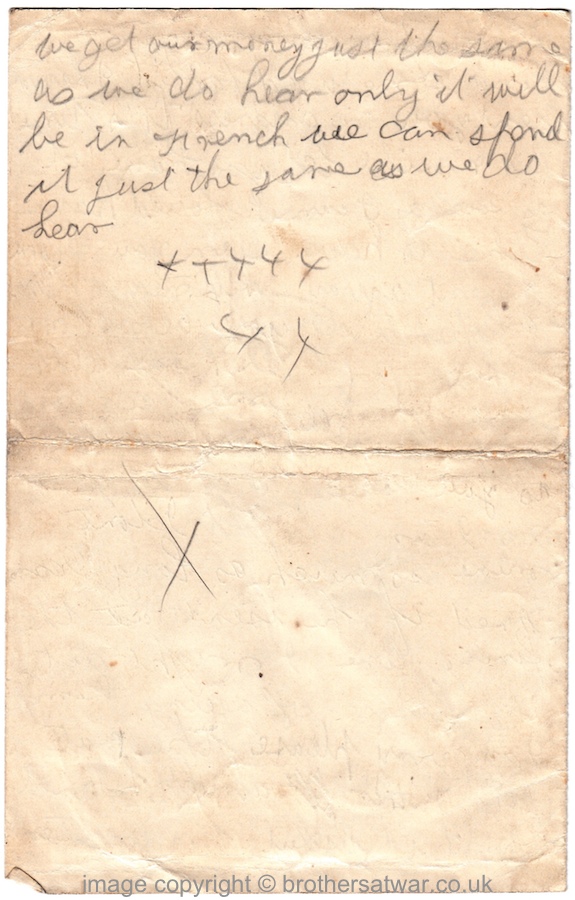 we get our money just the same
as we do hear only it will
be in French we can spend
it just the same as we do
hear
image copyright © brothersatwar.co.uk